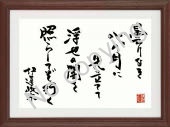 曇りなき
心の月を
先立てて
浮世の闇を
照らしてぞ行く
伊達政宗